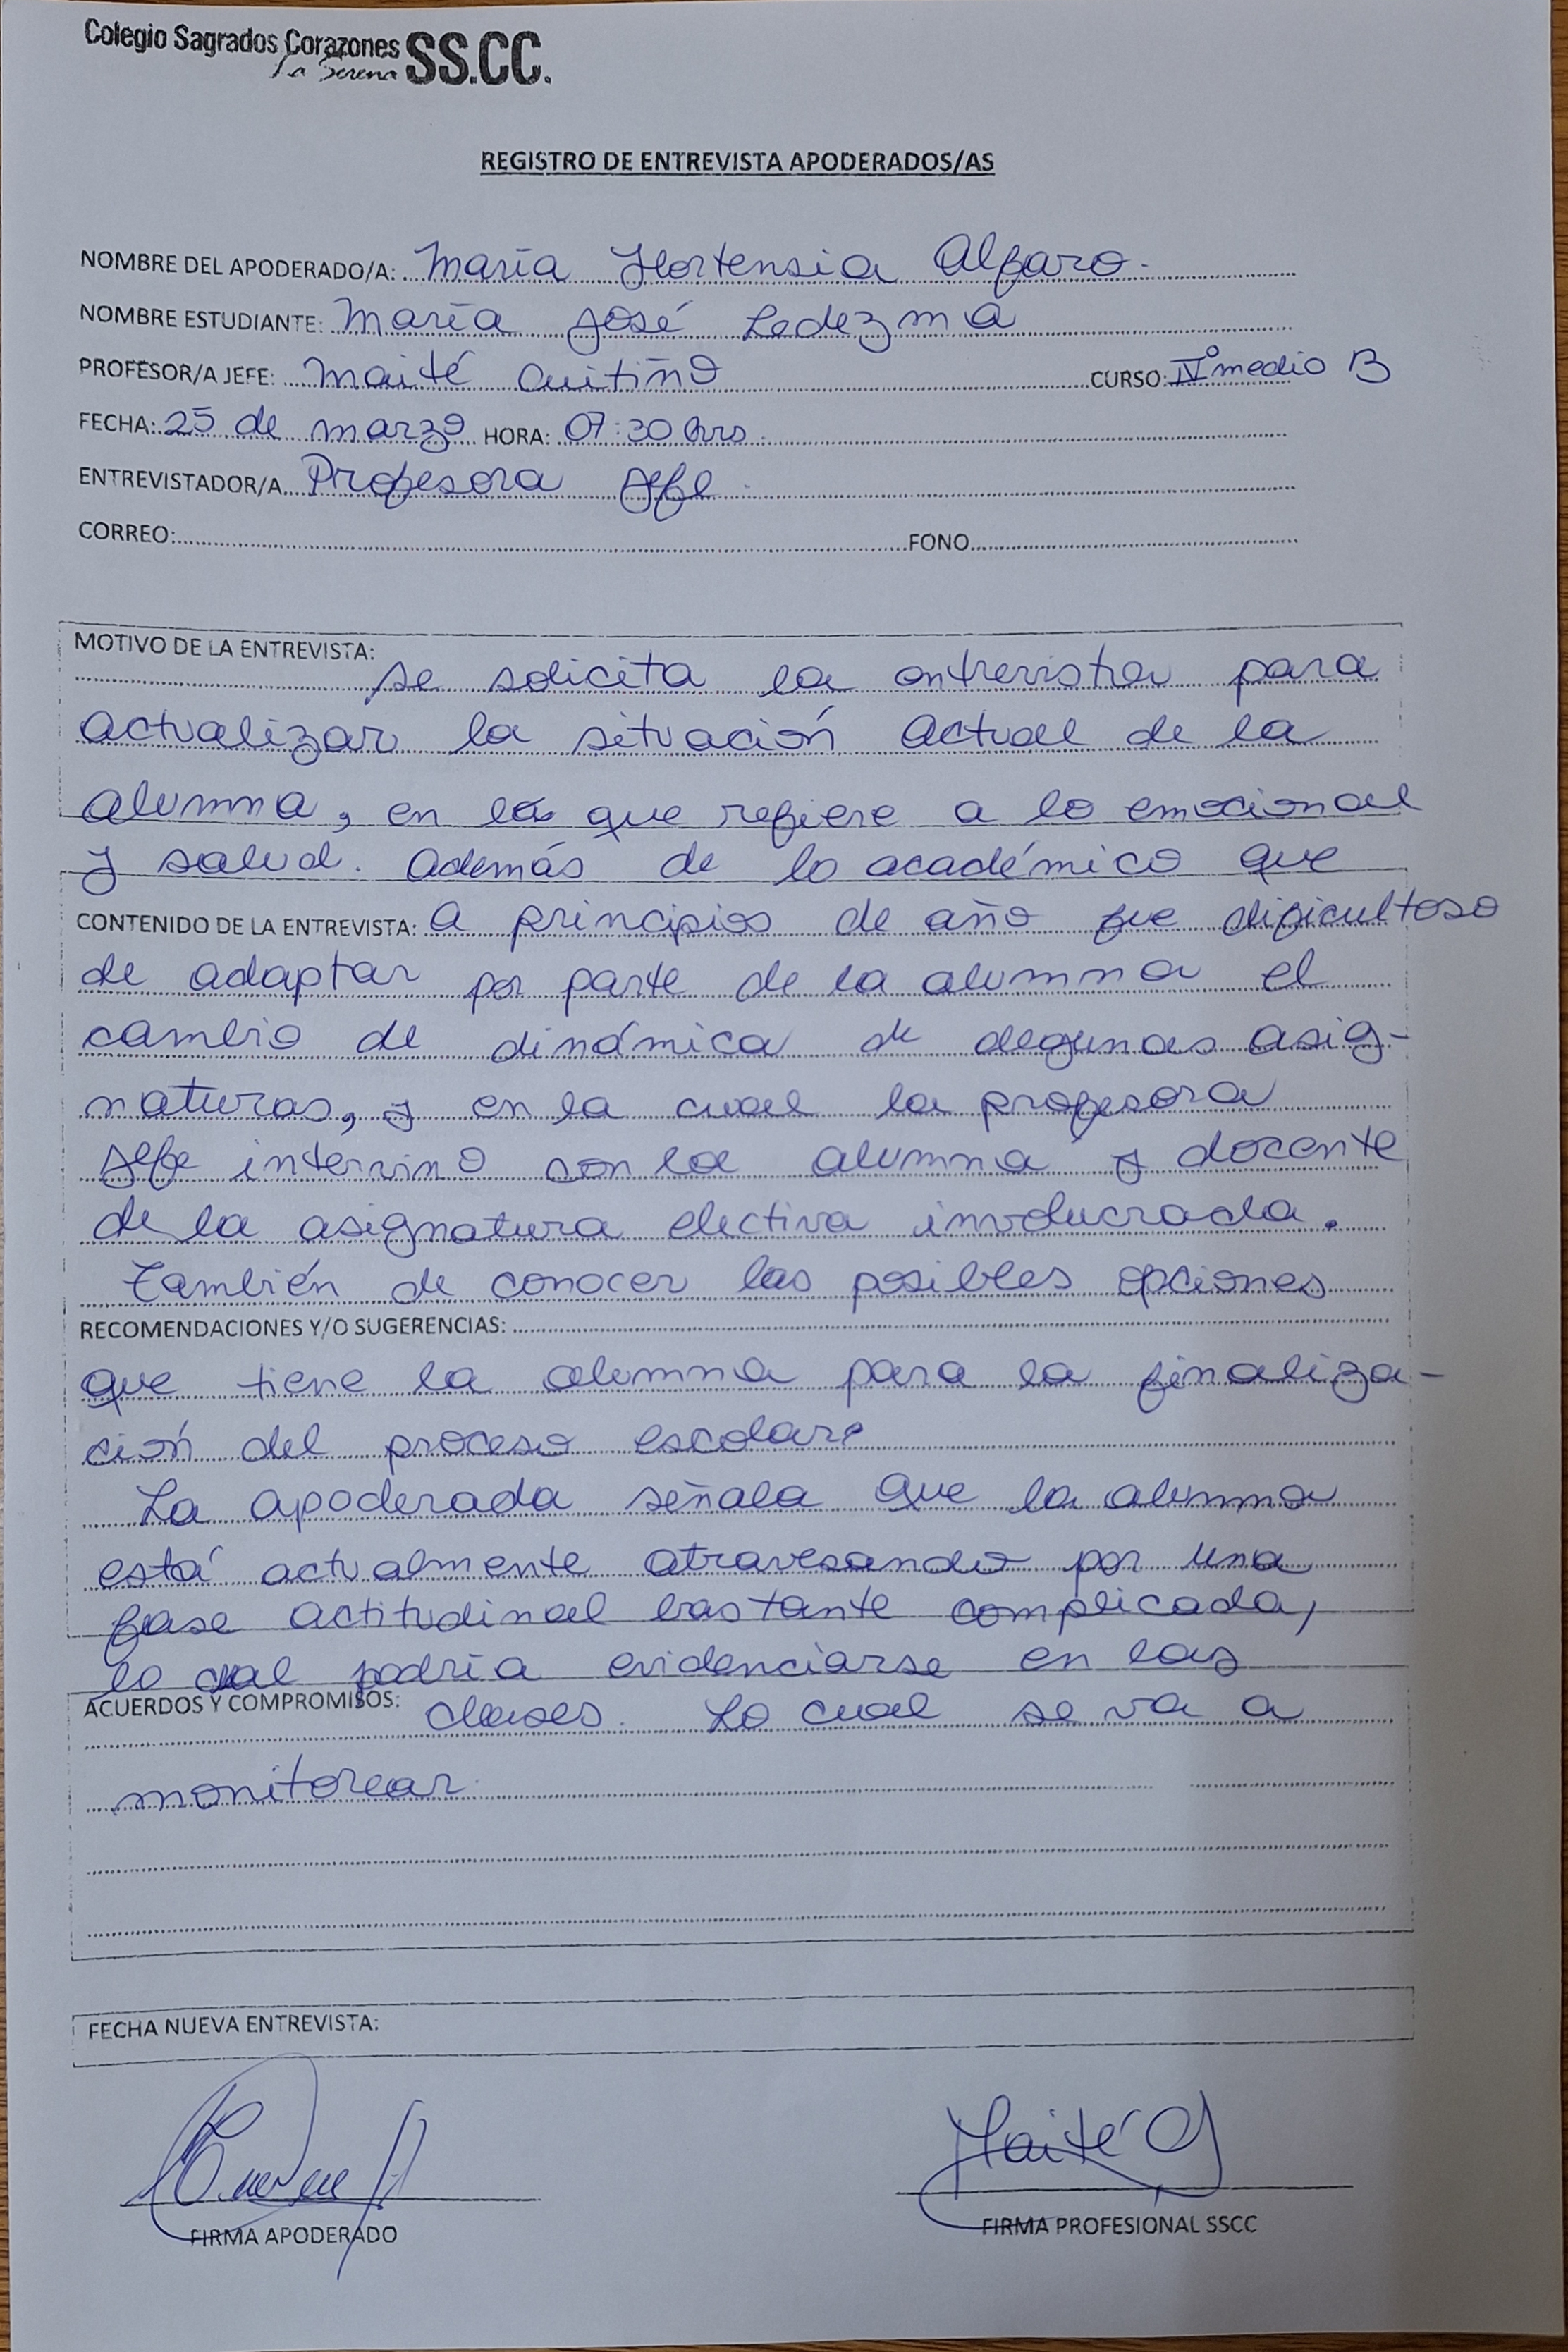 Colegio Sagrados Corazones SS.CC.
La Serena
REGISTRO DE ENTREVISTA APODERADOS/AS
NOMBRE DEL APODERADO/A: María Hortensia Alfaro.
NOMBRE ESTUDIANTE: María José Ledezma
PROFESOR/A JEFE: Maité Cuitiño CURSO: IVº medio B
FECHA: 25 de marzo HORA: 07:30 hrs.
ENTREVISTADOR/A Profesora Jefe.
CORREO: FONO
MOTIVO DE LA ENTREVISTA:
se solicita la entrevista para
actualizar la situación actual de la
alumna, en lo que refiere a lo emocional
y salud. Además de lo académico que
CONTENIDO DE LA ENTREVISTA: a principios de año fue dificultoso
de adaptar por parte de la alumna el
cambio de dinámica de algunas asig-
naturas, y en la cual la profesora
Jefe intervino con la alumna y docente
de la asignatura electiva involucrada.
También de conocer las posibles opciones
RECOMENDACIONES Y/O SUGERENCIAS:
que tiene la alumna para la finaliza-
ción del proceso escolar
La apoderada señala que la alumna
está actualmente atravesando por una
fase actitudinal bastante complicada,
lo cual podría evidenciarse en las
ACUERDOS Y COMPROMISOS: clases. Lo cual se va a
monitorear.
FECHA NUEVA ENTREVISTA:
Maité C
FIRMA APODERADO FIRMA PROFESIONAL SSCC